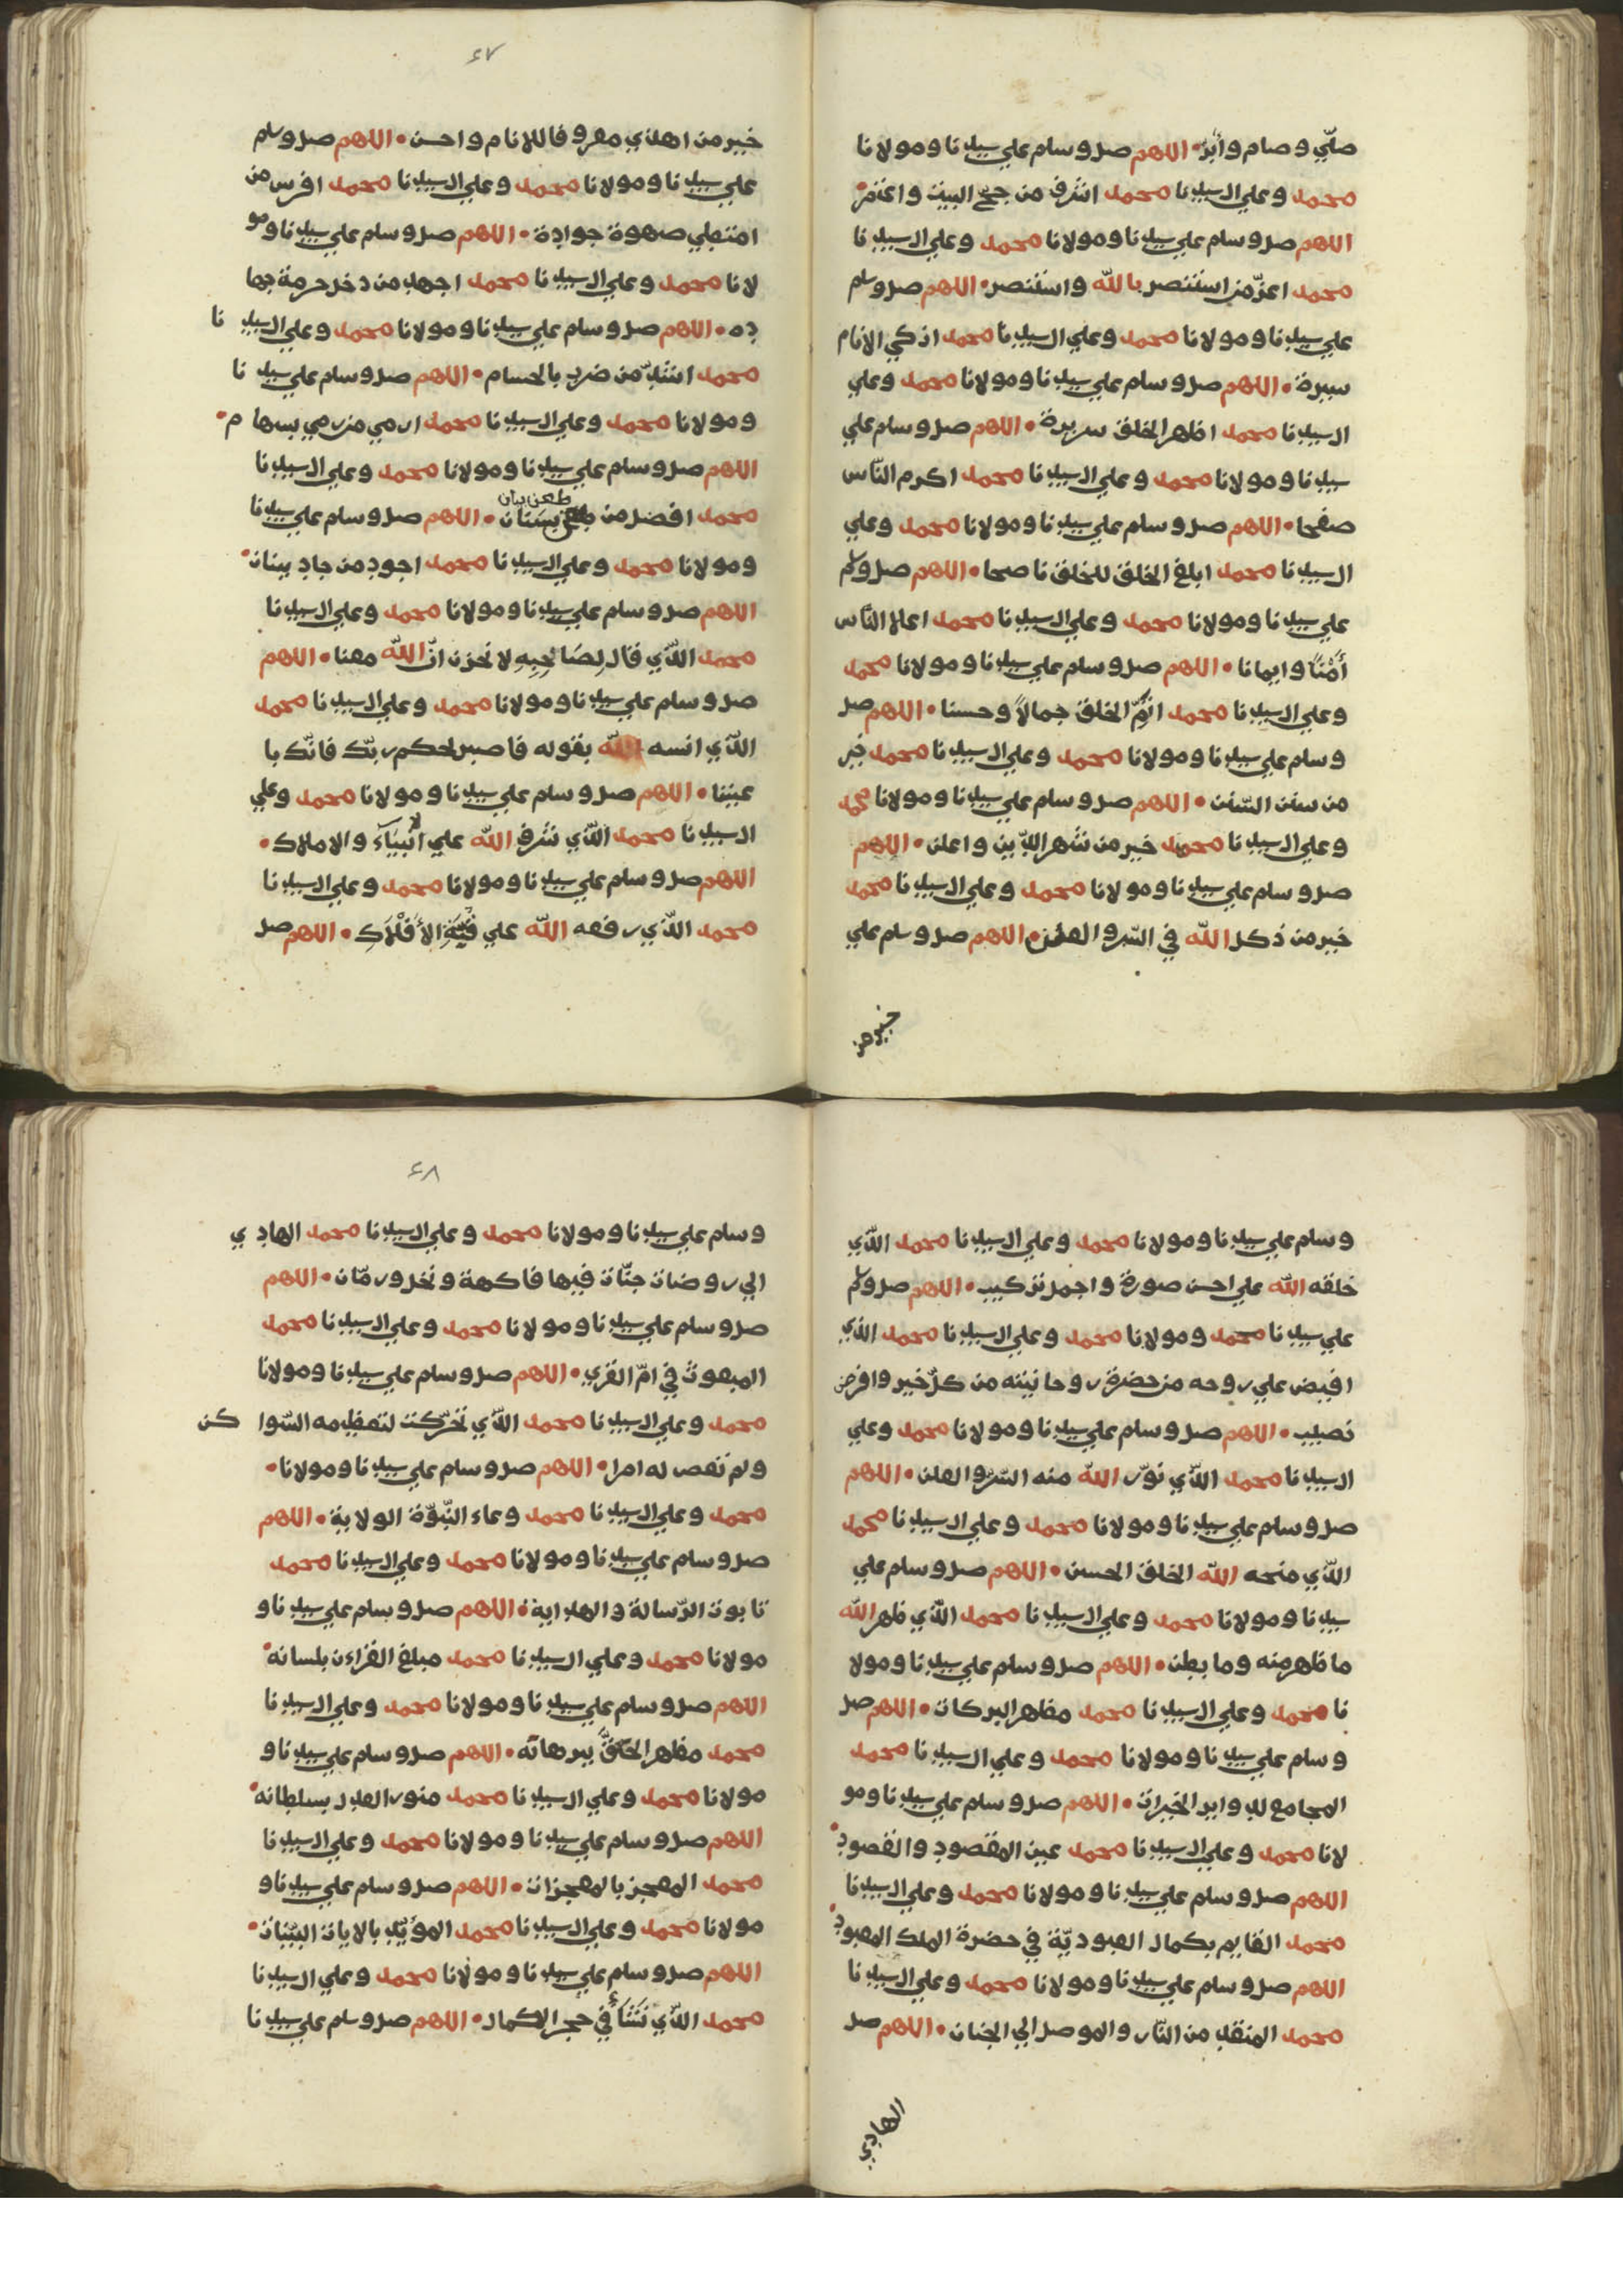 صلّي وصام وأبرّ • اللهم صل وسلم علي سيدنا ومولانا
محمد وعلي ال سيدنا محمد اشرف من حج البيت واعتمر •
اللهم صل وسلم علي سيدنا ومولانا محمد وعلي ال سيدنا
محمد اعزّ من استنصر بالله واستنصر • اللهم صل وسلم
علي سيدنا ومولانا محمد وعلي ال سيدنا محمد ازكي الانام
سيرة • اللهم صل وسلم علي سيدنا ومولانا محمد وعلي
ال سيدنا محمد اطهر الخلق سريرة • اللهم صل وسلم علي
سيدنا ومولانا محمد وعلي ال سيدنا محمد اكرم النّاس
صفحا • اللهم صل وسلم علي سيدنا ومولانا محمد وعلي
ال سيدنا محمد ابلغ الخلق للخلق ناصحا • اللهم صل وسلم
علي سيدنا ومولانا محمد وعلي ال سيدنا محمد اعلا النّاس
أمْناً وايمانا • اللهم صل وسلم علي سيدنا ومولانا محمد
وعلي ال سيدنا محمد اتمّ الخلق جمالاً وحسنا • اللهم صل
وسلم علي سيدنا ومولانا محمد وعلي ال سيدنا محمد خير
من سنّ السّنن • اللهم صل وسلم علي سيدنا ومولانا محمد
وعلي ال سيدنا محمد خير من شهر الدّين واعلن • اللهم
صل وسلم علي سيدنا ومولانا محمد وعلي ال سيدنا محمد
خير من ذكر الله في السّر والعلن • اللهم صل وسلم علي
خير من
٤٧
خير من اهدي معروفا للانام واحسن • اللهم صل وسلم
علي سيدنا ومولانا محمد وعلي ال سيدنا محمد افرس من
امتطي صهوة جواده • اللهم صل وسلم علي سيدنا ومو
لانا محمد وعلي ال سيدنا محمد اجهد من دخل حرمة جها
ده • اللهم صل وسلم علي سيدنا ومولانا محمد وعلي ال سيد نا
محمد اشدّ من ضرب بالحسام • اللهم صل وسلم علي سيد نا
ومولانا محمد وعلي ال سيدنا محمد ارمي من رمي بسها م •
اللهم صل وسلم علي سيدنا ومولانا محمد وعلي ال سيدنا
محمد افضل من طعن بسنان • اللهم صل وسلم علي سيدنا
ومولانا محمد وعلي ال سيدنا محمد اجود من جاد ببنان •
اللهم صل وسلم علي سيدنا ومولانا محمد وعلي ال سيدنا
محمد الذي قال لِصَاحِبِهِ لا تحزن انّ الله معنا • اللهم
صل وسلم علي سيدنا ومولانا محمد وعلي ال سيدنا محمد
الذي انسه الله بقوله فاصبر لحكم ربّك فانّك با
عيننا • اللهم صل وسلم علي سيدنا ومولانا محمد وعلي
ال سيدنا محمد الذي شرف الله علي الأنْبِيَاءَ والاملاك •
اللهم صل وسلم علي سيدنا ومولانا محمد وعلي ال سيدنا
محمد الذي رفعه الله علي قُبّةِ الأَفْلَاكِ • اللهم صل
وسلم علي سيدنا ومولانا محمد وعلي ال سيدنا محمد الذي
خلقه الله علي احسن صورة واجمل تركيب • اللهم صل وسلم
علي سيدنا محمد ومولانا محمد وعلي ال سيدنا محمد الذي
افيض علي روحه من حضرة روحانيته من كلّ خير وافر من
نصيب • اللهم صل وسلم علي سيدنا ومولانا محمد وعلي
ال سيدنا محمد الذي نوّر الله منه السّر والعلن • اللهم
صل وسلم علي سيدنا ومولانا محمد وعلي ال سيدنا محمد
الذي منحه الله الخلق الحسن • اللهم صل وسلم علي
سيدنا ومولانا محمد وعلي ال سيدنا محمد الذي طهر الله
ما ظهر منه وما بطن • اللهم صل وسلم علي سيدنا ومولا
نا محمد وعلي ال سيدنا محمد مظهر البركات • اللهم صل
وسلم علي سيدنا ومولانا محمد وعلي ال سيدنا محمد
الجامع لدواير الخيرات • اللهم صل وسلم علي سيدنا ومو
لانا محمد وعلي ال سيدنا محمد عين المقصود والقصود •
اللهم صل وسلم علي سيدنا ومولانا محمد وعلي ال سيدنا
محمد القايم بكمال العبوديّة في حضرة الملك المعبود •
اللهم صل وسلم علي سيدنا ومولانا محمد وعلي ال سيدنا
محمد المنقذ من النّار والموصل الي الجنان • اللهم صل
الهادي
٤٨
وسلم علي سيدنا ومولانا محمد وعلي ال سيدنا محمد الهاد ي
الي روضات جنّات فيها فاكهة ونخل ورمّان • اللهم
صل وسلم علي سيدنا ومولانا محمد وعلي ال سيدنا محمد
المبعوث في امّ القري • اللهم صل وسلم علي سيدنا ومولانا
محمد وعلي ال سيدنا محمد الذي تحرّكت لتعظيمه السّوا كن
ولم تعص له امرا • اللهم صل وسلم علي سيدنا ومولانا •
محمد وعلي ال سيدنا محمد وعاء النّبوّة الولاية • اللهم
صل وسلم علي سيدنا ومولانا محمد وعلي ال سيدنا محمد
تابوت الرّسالة والهداية • اللهم صل وسلم علي سيدنا و
مولانا محمد وعلي ال سيدنا محمد مبلغ القراءن بلسانه •
اللهم صل وسلم علي سيدنا ومولانا محمد وعلي ال سيدنا
محمد مظهر الحقّ ببرهانه • اللهم صل وسلم علي سيدنا و
مولانا محمد وعلي ال سيدنا محمد منور العدل بسلطانه •
اللهم صل وسلم علي سيدنا ومولانا محمد وعلي ال سيدنا
محمد المعجز بالمعجزات • اللهم صل وسلم علي سيدنا و
مولانا محمد وعلي ال سيدنا محمد المؤيّد بالايات البيّنات •
اللهم صل وسلم علي سيدنا ومولانا محمد وعلي ال سيدنا
محمد الذي نَشَأَ في حجر الكمال • اللهم صل وسلم علي سيدنا